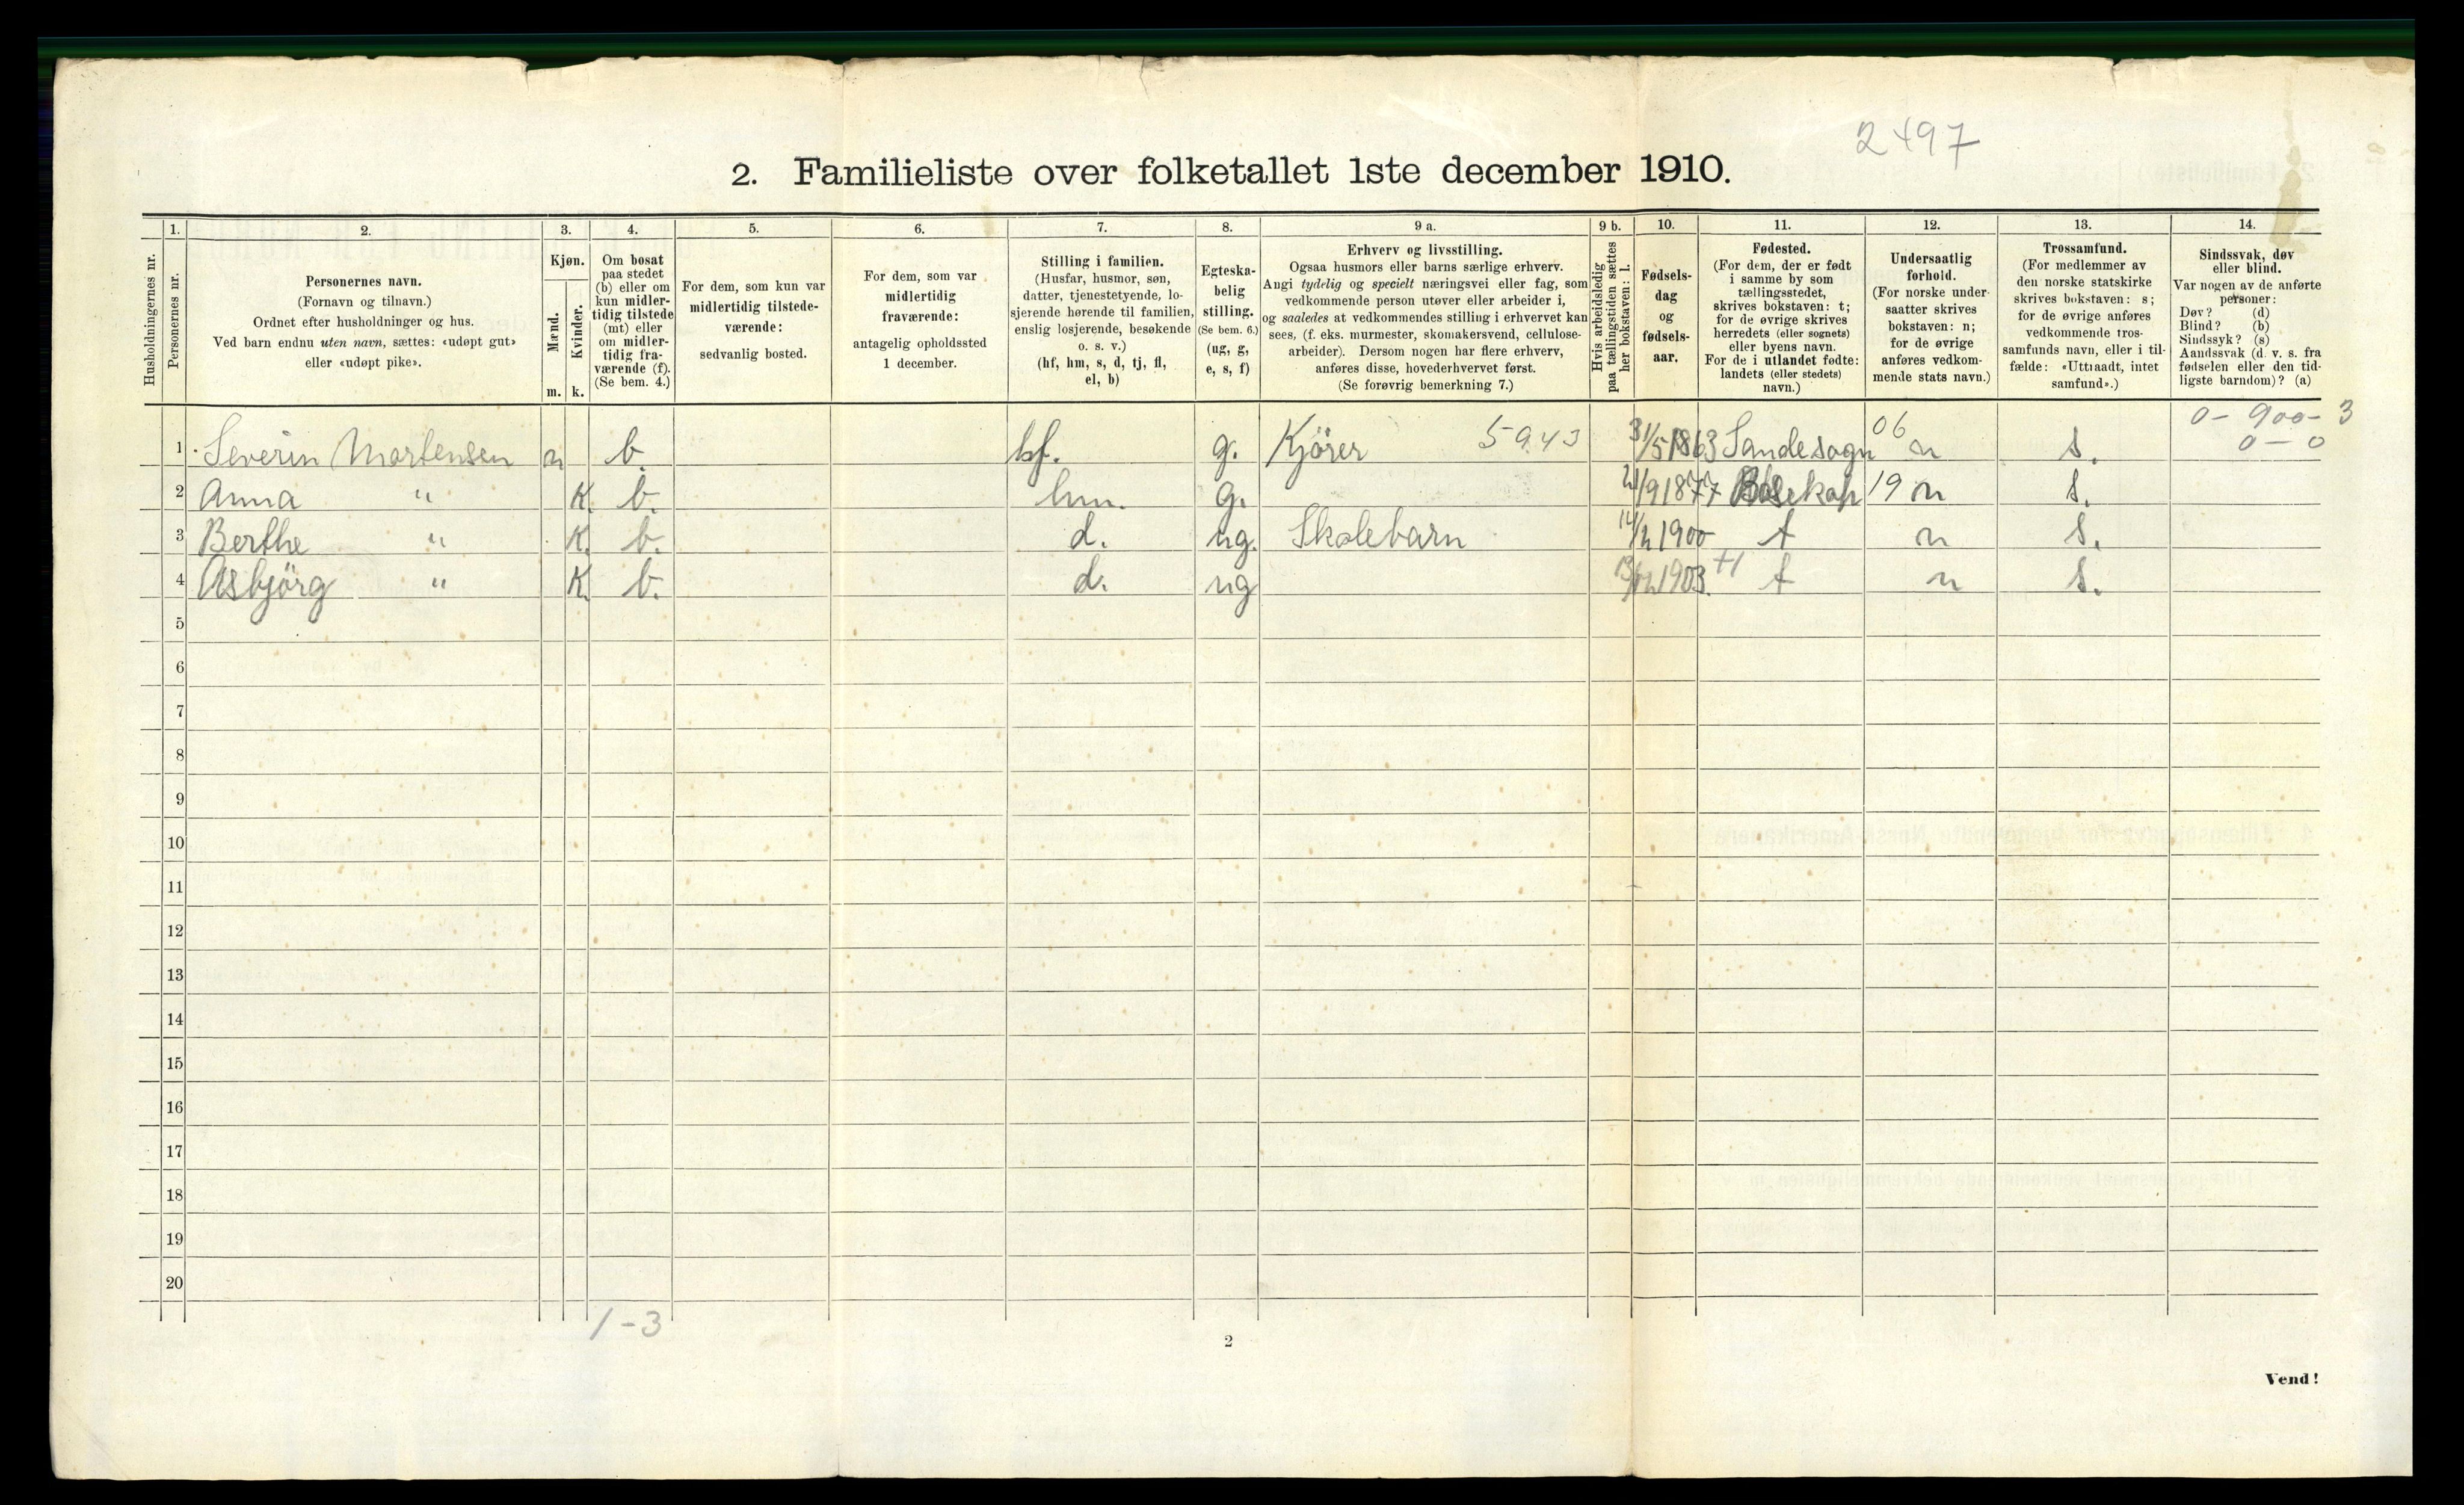 2497
2. Familieliste over folketallet 1ste december 1910.
1. 2. 3. 4. 5. 6. 7. 8. 9 a. 9 b. 10. 11. 12. 13. 14.
Husholdningernes nr.
Personernes nr.
Personernes navn.
(Fornavn og tilnavn.)
Ordnet efter husholdninger og hus.
Ved barn endnu uten navn, sættes: «udøpt gut»
eller «udøpt pike».
Kjøn.
Mænd.
Kvinder.
m. k.
Om bosat
paa stedet
(b) eller om
kun midler-
tidig tilstede
(mt) eller
om midler-
tidig fra-
værende (f).
(Se bem. 4.)
For dem, som kun var
midlertidig tilstede-
værende:
sedvanlig bosted.
For dem, som var
midlertidig
fraværende:
antagelig opholdssted
1 december.
Stilling i familien.
(Husfar, husmor, søn,
datter, tjenestetyende, lo-
sjerende hørende til familien,
enslig losjerende, besøkende
o. s. v.)
(hf, hm, s, d, tj, fl,
el, b)
Egteska-
belig
stilling.
(Se bem. 6.)
(ug, g,
e, s, f)
Erhverv og livsstilling.
Ogsaa husmors eller barns særlige erhverv.
Angi tydelig og specielt næringsvei eller fag, som
vedkommende person utøver eller arbeider i,
og saaledes at vedkommendes stilling i erhvervet kan
sees, (f. eks. murmester, skomakersvend, cellulose-
arbeider). Dersom nogen har flere erhverv,
anføres disse, hovederhvervet først.
(Se forøvrig bemerkning 7.)
Hvis arbeidsledig
paa tællingstiden sættes
her bokstaven: l.
Fødsels-
dag
og
fødsels-
aar.
Fødested.
(For dem, der er født
i samme by som
tællingsstedet,
skrives bokstaven: t;
for de øvrige skrives
herredets (eller sognets)
eller byens navn.
For de i utlandet fødte:
landets (eller stedets)
navn.)
Undersaatlig
forhold.
(For norske under-
saatter skrives
bokstaven: n;
for de øvrige
anføres vedkom-
mende stats navn.)
Trossamfund.
(For medlemmer av
den norske statskirke
skrives bokstaven: s;
for de øvrige anføres
vedkommende tros-
samfunds navn, eller i til-
fælde: «Uttraadt, intet
samfund».)
Sindssvak, døv
eller blind.
Var nogen av de anførte
personer:
Døv? (d)
Blind? (b)
Sindssyk? (s)
Aandssvak (d. v. s. fra
fødselen eller den tid-
ligste barndom)? (a)
0 - 900 - 3
1 Severin Mortensen m b. hf. g. Kjörer 5943 31/5 1863 Sandesogn 06 n s. 0 - 0
2 Anna " K. b. hm. g. 21/9 1877 19 n s.
3 Berthe " K. b. d. ug. Skolebarn 14/2 1900 t n s.
4 Asbjörg " K. b. d. ug 1903. t n s.
5
6
7
8
9
10
11
12
13
14
15
16
17
18
19
20
1-3
2
Vend!